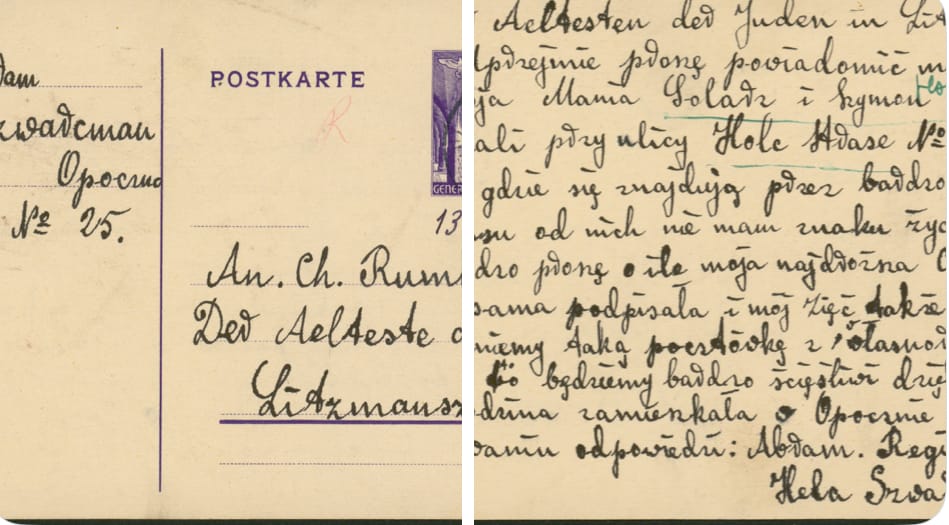 POSTKARTE
R
Opoczno
№ 25.
GENER
13
An. Ch. Rum
Der Aelteste d
Litzmansz
Aeltesten der Juden in Lit
proszę powiadomić m
ja Mama Soladz i Szymon
ali przy ulicy Holc Strase №
gdzie się znajdują przez bardzo
su od nich nie mam znaku życ
dro proszę o ile moja najdrożna
sama podpisała i mój zięć także
niemy taką pocztówkę z własno
to będziemy bardzo sczęsliwi
dzina zamieszkała w Opocznie
waniu odpowiedzi: Abram. Regi
Hela Szwa